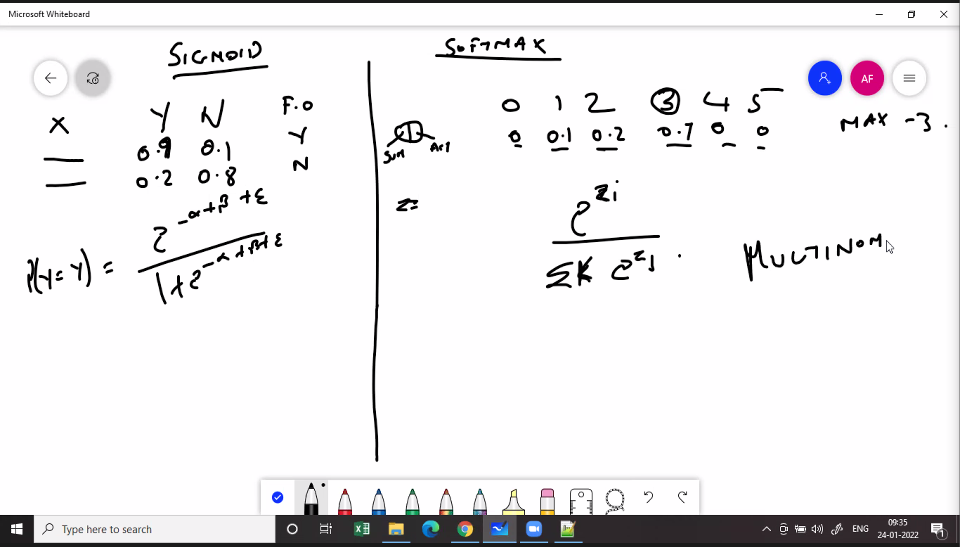 Microsoft Whiteboard
SIGMOID
X Y N F.O
0.9 0.1 Y
0.2 0.8 N
P(Y=Y) = e^-α+β+ε / 1+e^-α+β+ε
SOFTMAX
0 1 2 3 4 5
0 0.1 0.2 0.7 0 0
MAX - 3.
Z=
e^zi
ΣK e^zj
MULTINOM
AF
Type here to search
ENG
09:35
24-01-2022